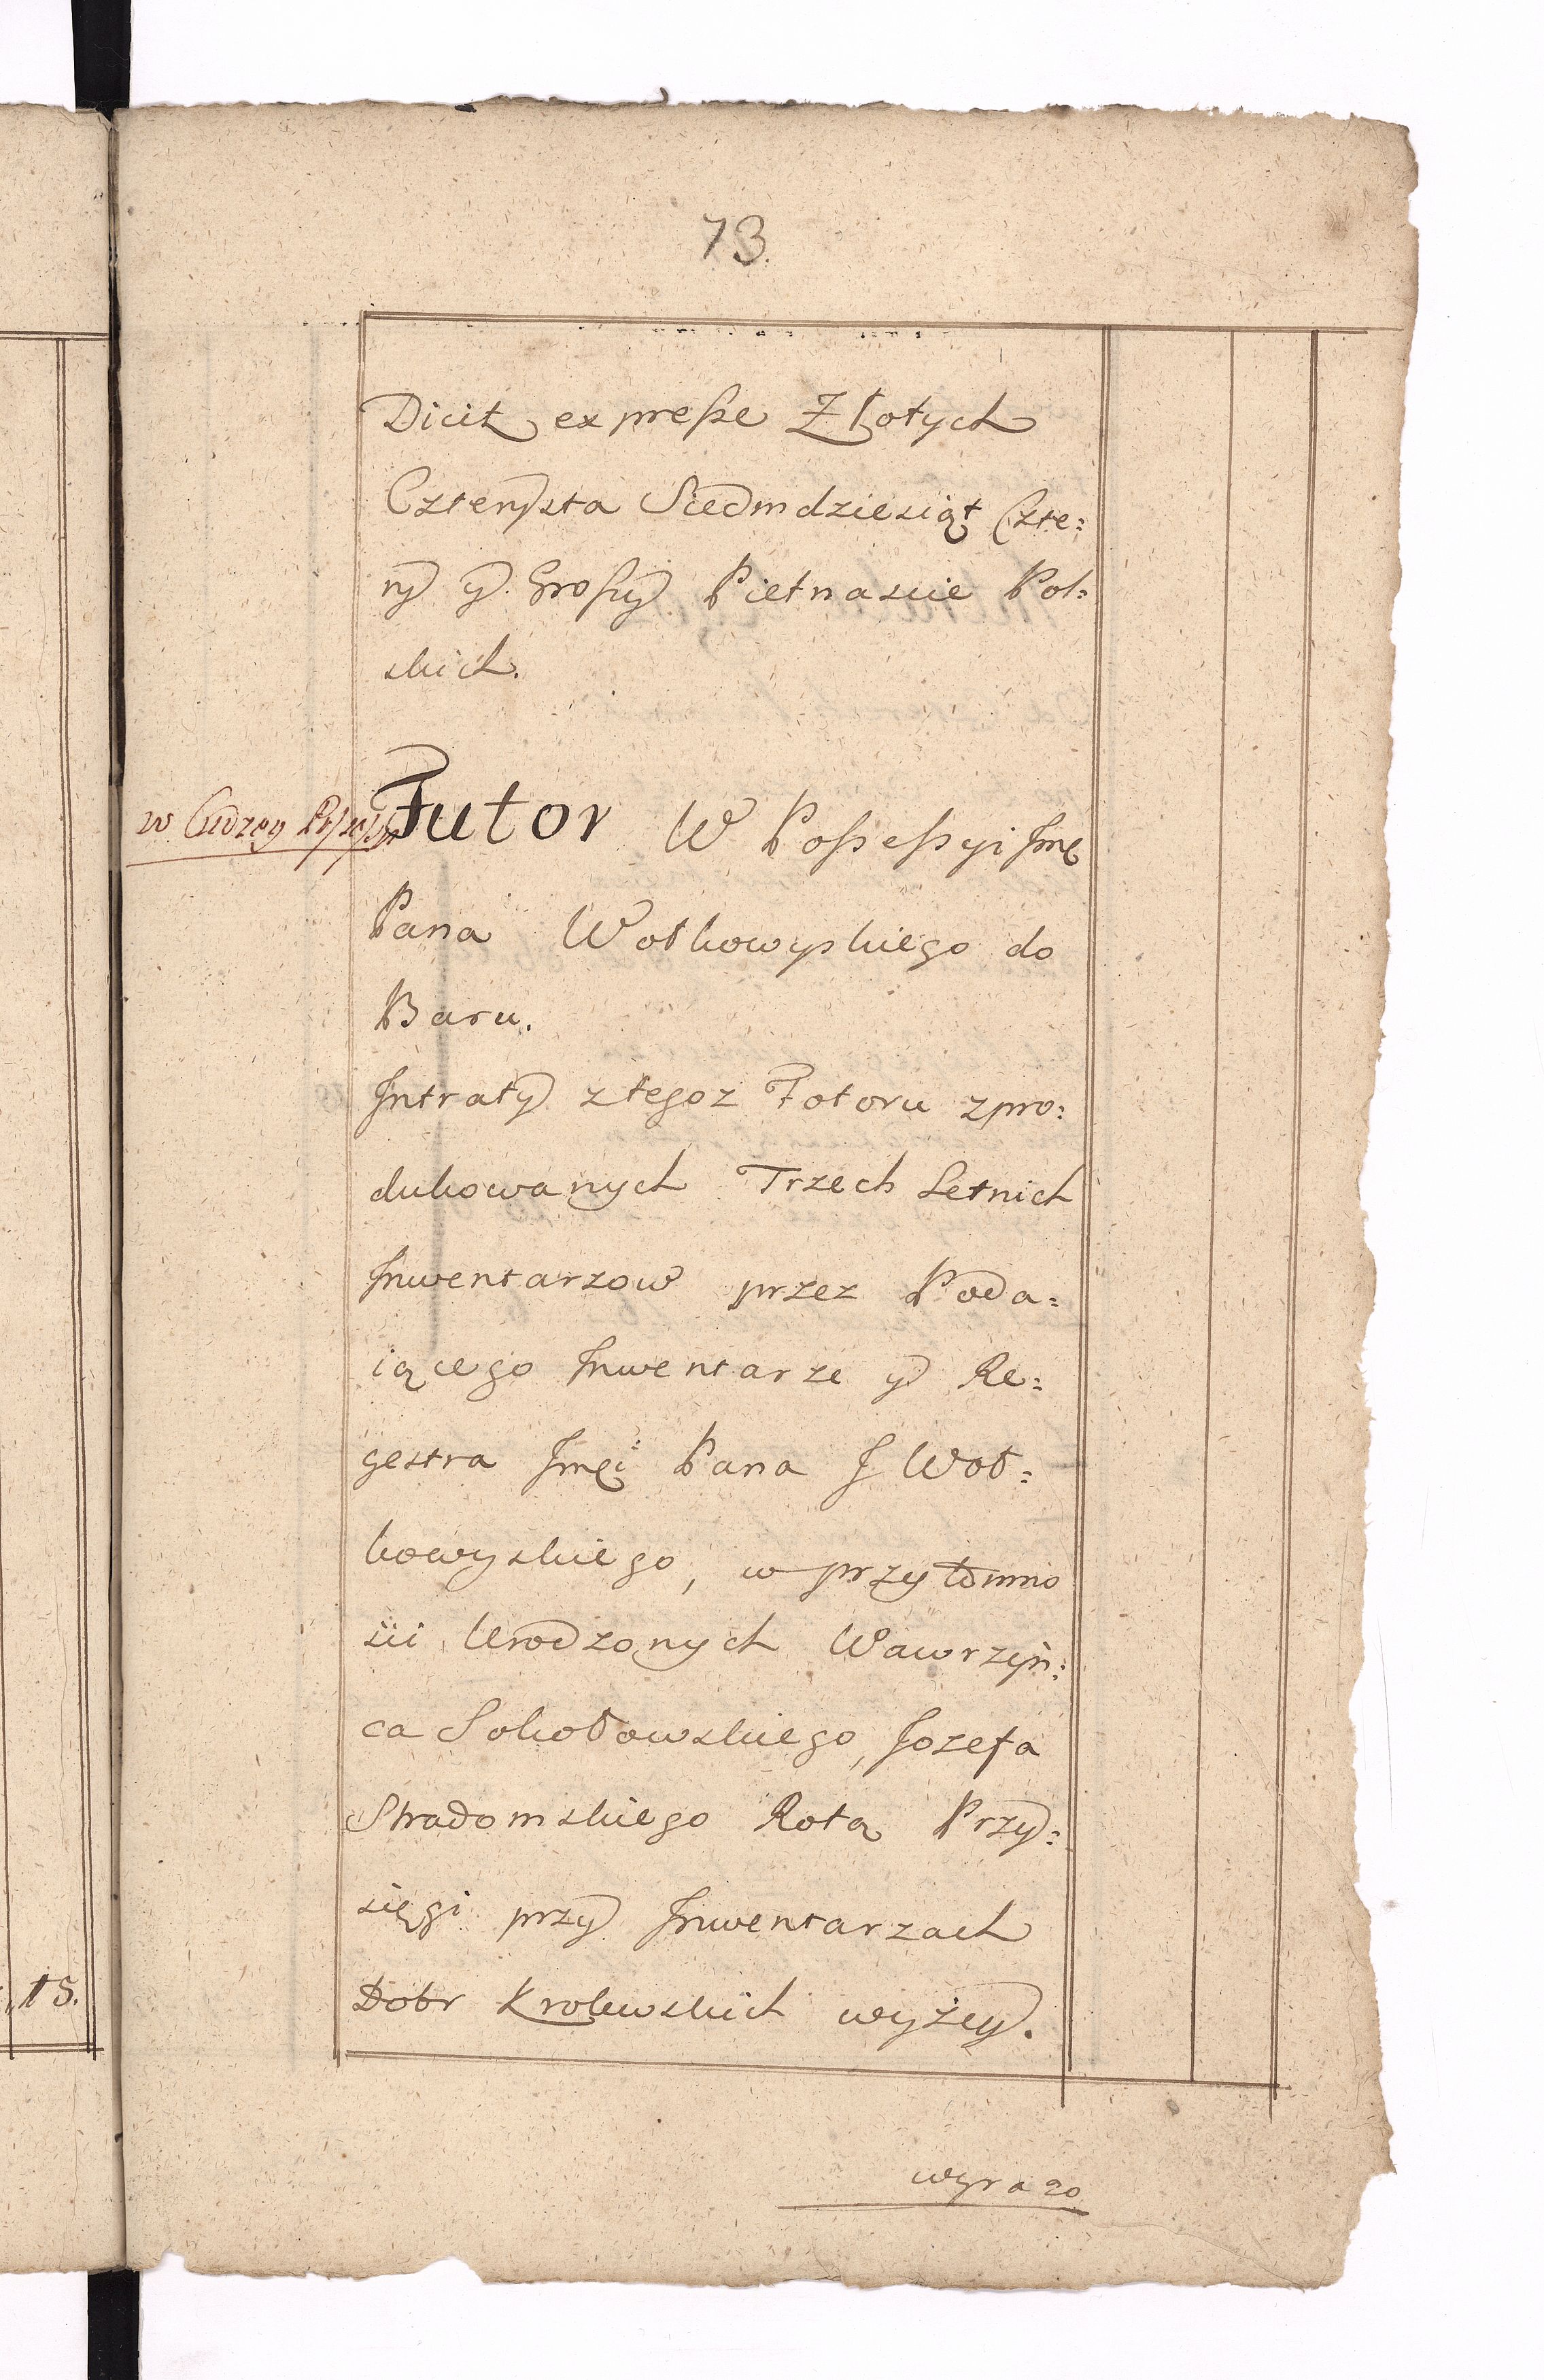 73.
Dicit expreße Złotych
Czterysta Siedmdziesiąt Czte:
ry y Groszy Pietnascie Pol:
skich.
w Cudzey Possessyi
Futor W Poßeßyi Jmę
Pana Wołkowyskiego do
Baru.
Jntraty z tegoz Fotoru zpro:
dukowanych Trzech Letnich
Jnwentarzow przez Poda:
iącego Jnwentarze y Re:
gestra Jmęi Pana J Woł:
kowyskiego, w przytomno
sci Urodzonych Wawrzyń:
ca Sokołowskiego, Jozefa
Stradomskiego Rotą Przy:
sięgi przy Jnwentarzach
Dobr Krolewskich wyżey.
wyrazo
15.